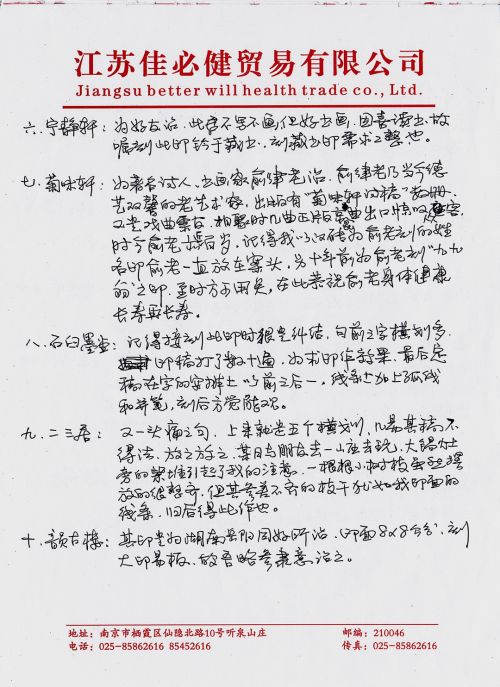 江苏佳必健贸易有限公司
Jiangsu better will health trade co., Ltd.
六、宁静轩：为好友治，此君不写不画但好书画，因喜读书，故
嘱刻此印钤于藏书，刻藏书印需求工整也。
七、菊味轩：为著名诗人、书画家俞律老治，俞律老乃当今德
艺双馨的老艺术家，出版有“菊味轩诗稿”数册，
又是戏曲票友，相聚时几曲正版京曲出口惊
时今俞老九十岁，记得我以汉砖为俞老刻的姓
名印俞老一直放在案头，另十年前为俞老刻“九九
翁”之印，至时方可用矣，在此恭祝俞老身体健康
长寿再长寿。
八、石臼墨堂：记得接刻此印时很是纠结，句前之字横划多，
印稿打了数十遍，为求印作效果，最后定
稿在字的安排上以前三后一，线条上加上弧线
和并笔，刻后方觉能观。
九、二三居：又一头痛之句，上来就是五个横划，几易其稿不
得法，放之多之，某日与朋友去一山庄去玩，大锅灶
旁的柴堆引起了我的注意，一根根小树枝虽已摆
放的很整齐，但其参差不齐的枝干犹如我印面的
线条，归后得此作也。
十、韵古楼：其印是为湖南岳阳同好所治，印面8x8公分，刻
大印易板，故吾略参秉意治之。
地址：南京市栖霞区仙隐北路10号听泉山庄
邮编：210046
电话：025-85862616 85452616
传真：025-85862616